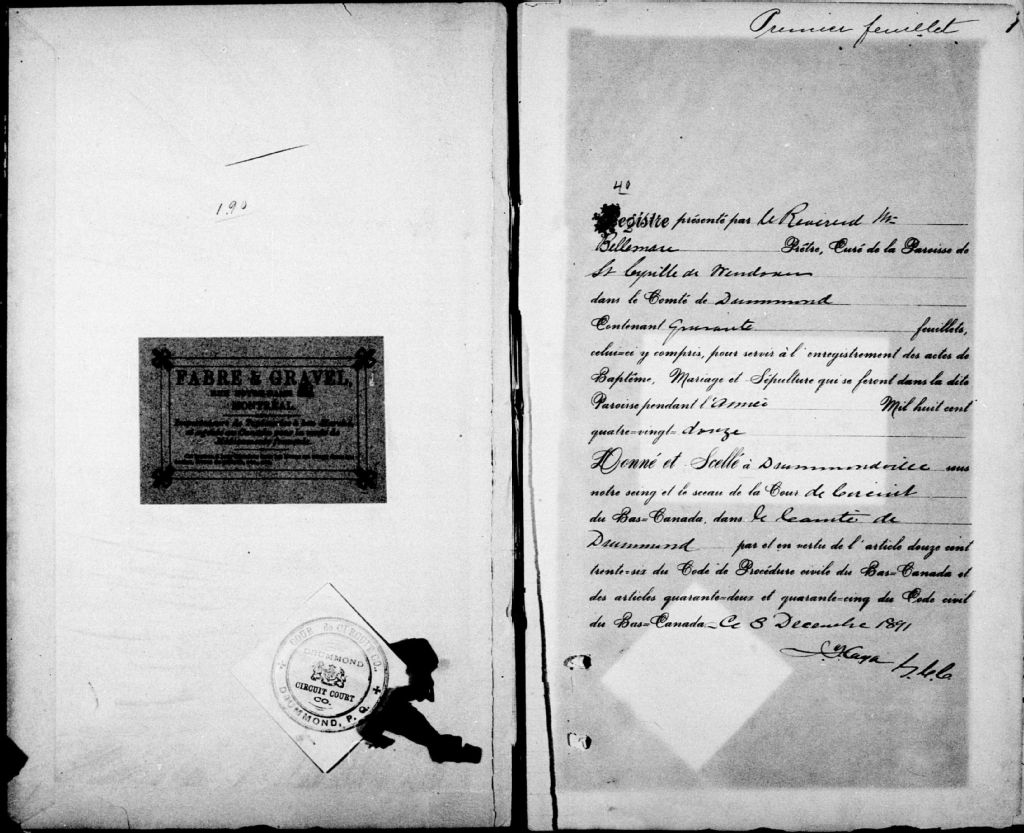 190
FABRE & GRAVEL,
MONTREAL
COUR de CIRCUIT CO.
DRUMMOND
CIRCUIT COURT
CO.
DRUMMOND, P. Q.
Premier feuillet
40
Registre présenté par le Reverend Mr
Bellemare Prêtre, Curé de la Paroisse de
St Cyrille de Wendover
dans le Comté de Drummond
Contenant Quarante feuillets,
celui-ci y compris, pour servir à l'enregistrement des actes de
Baptême, Mariage et Sépulture qui se feront dans la dite
Paroisse pendant l'Année Mil huit cent
quatre-vingt-douze
Donné et Scellé à Drummondville sous
notre seing et le sceau de la Cour de Circuit
du Bas-Canada, dans le Comté de
Drummond par et en vertu de l'article douze cent
trente-six du Code de Procédure civile du Bas-Canada et
des articles quarante-deux et quarante-cinq du Code civil
du Bas-Canada_Ce 3 Decembre 1891